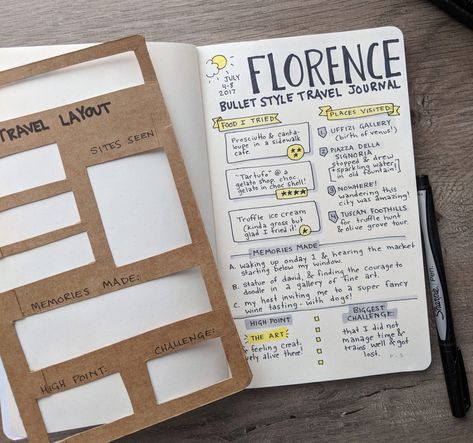 TRAVEL LAYOUT
SITES SEEN
MEMORIES MADE:
HIGH POINT:
CHALLENGE:
JULY
4-8
2017
FLORENCE
BULLET STYLE TRAVEL JOURNAL
FOOD I TRIED
Prosciutto & canta-
loupe in a sidewalk
cafe.
"Tartufo" @ a
gelato shop. choc.
gelato in choc shell!
Truffle ice cream
(kinda gross but
glad I tried it!
PLACES VISITED
1 UFFIZI GALLERY
(birth of venus!)
2 PIAZZA DELLA
SIGNORIA
stopped & drew
sparkling water
in old fountain!
3 NOWHERE!
wandering this
city was amazing!
4 TUSCAN FOOTHILLS
for truffle hunt
& olive grove tour.
MEMORIES MADE
A. waking up on day 1 & hearing the market
starting below my window.
B. statue of david, & finding the courage to
doodle in a gallery of fine art.
C. my host inviting me to a super fancy
wine tasting - with dogs!
HIGH POINT
THE ART
& feeling creat
vely alive there!
BIGGEST
CHALLENGE:
that I did not
manage time &
trains well & got
lost.
Sharpie Pen